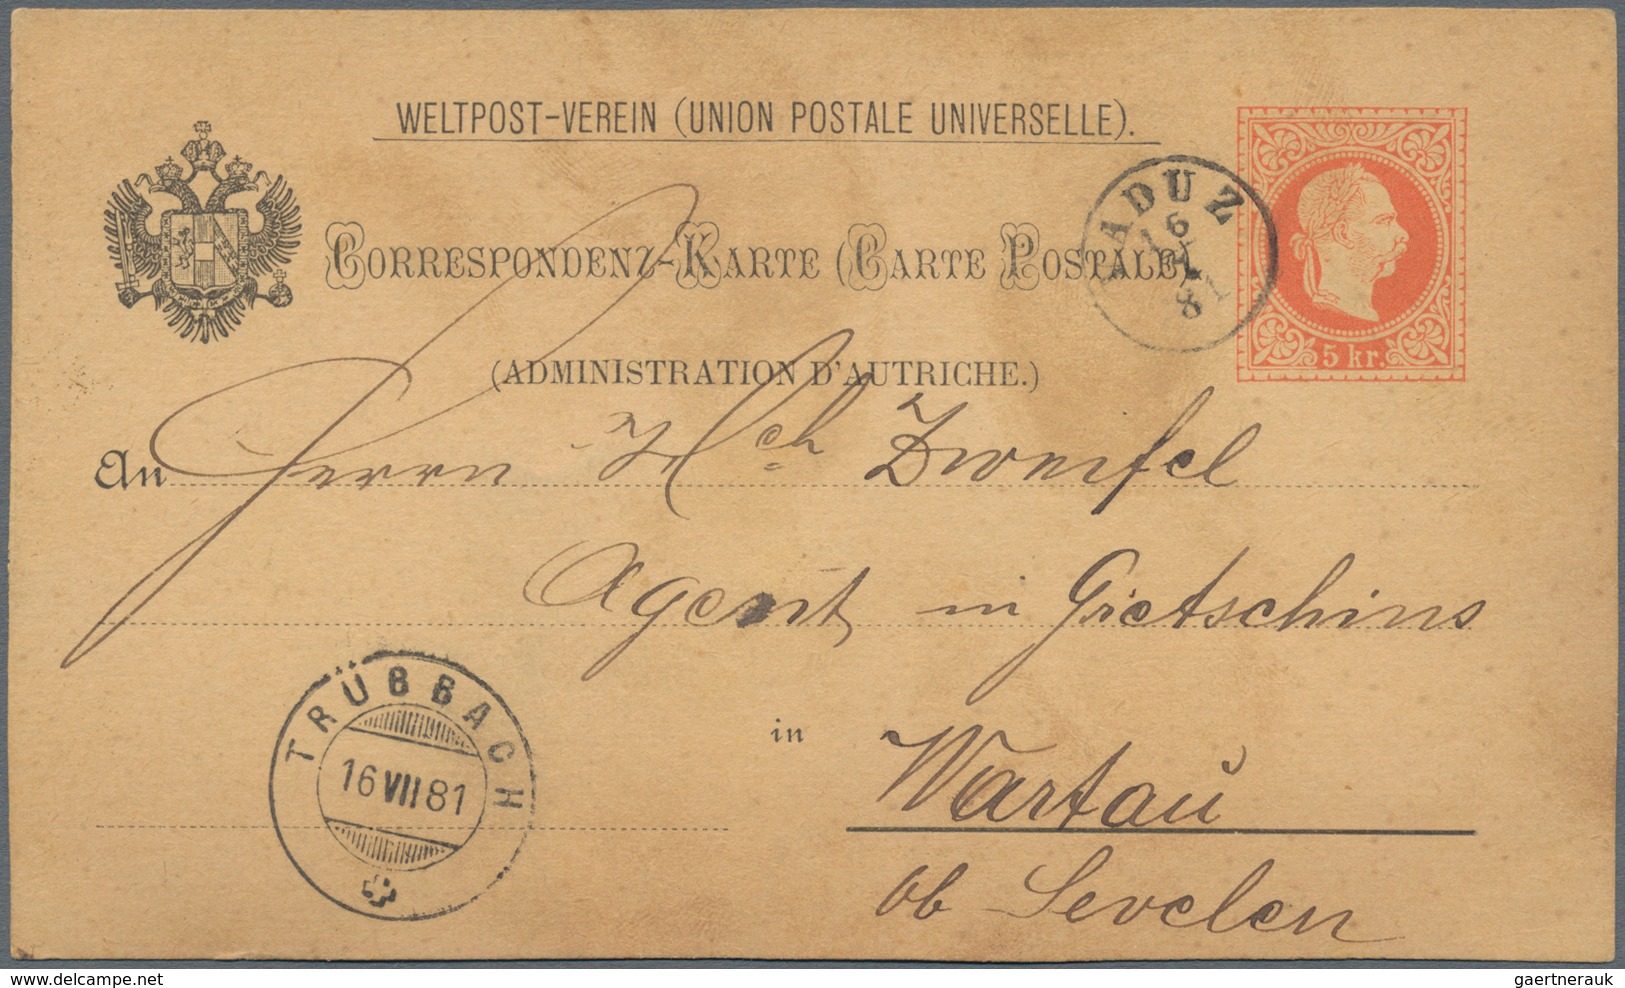 WELTPOST-VEREIN (UNION POSTALE UNIVERSELLE).
CORRESPONDENZ-KARTE (CARTE POSTALE)
(ADMINISTRATION D'AUTRICHE.)
VADUZ
16
81
5 kr.
An Herrn Hch Zweifel
Agent in Gretschins
in Wartau
ob Sevelen
TRÜBBACH
16 VII 81
(c) delcampe.net
gaertnerauk